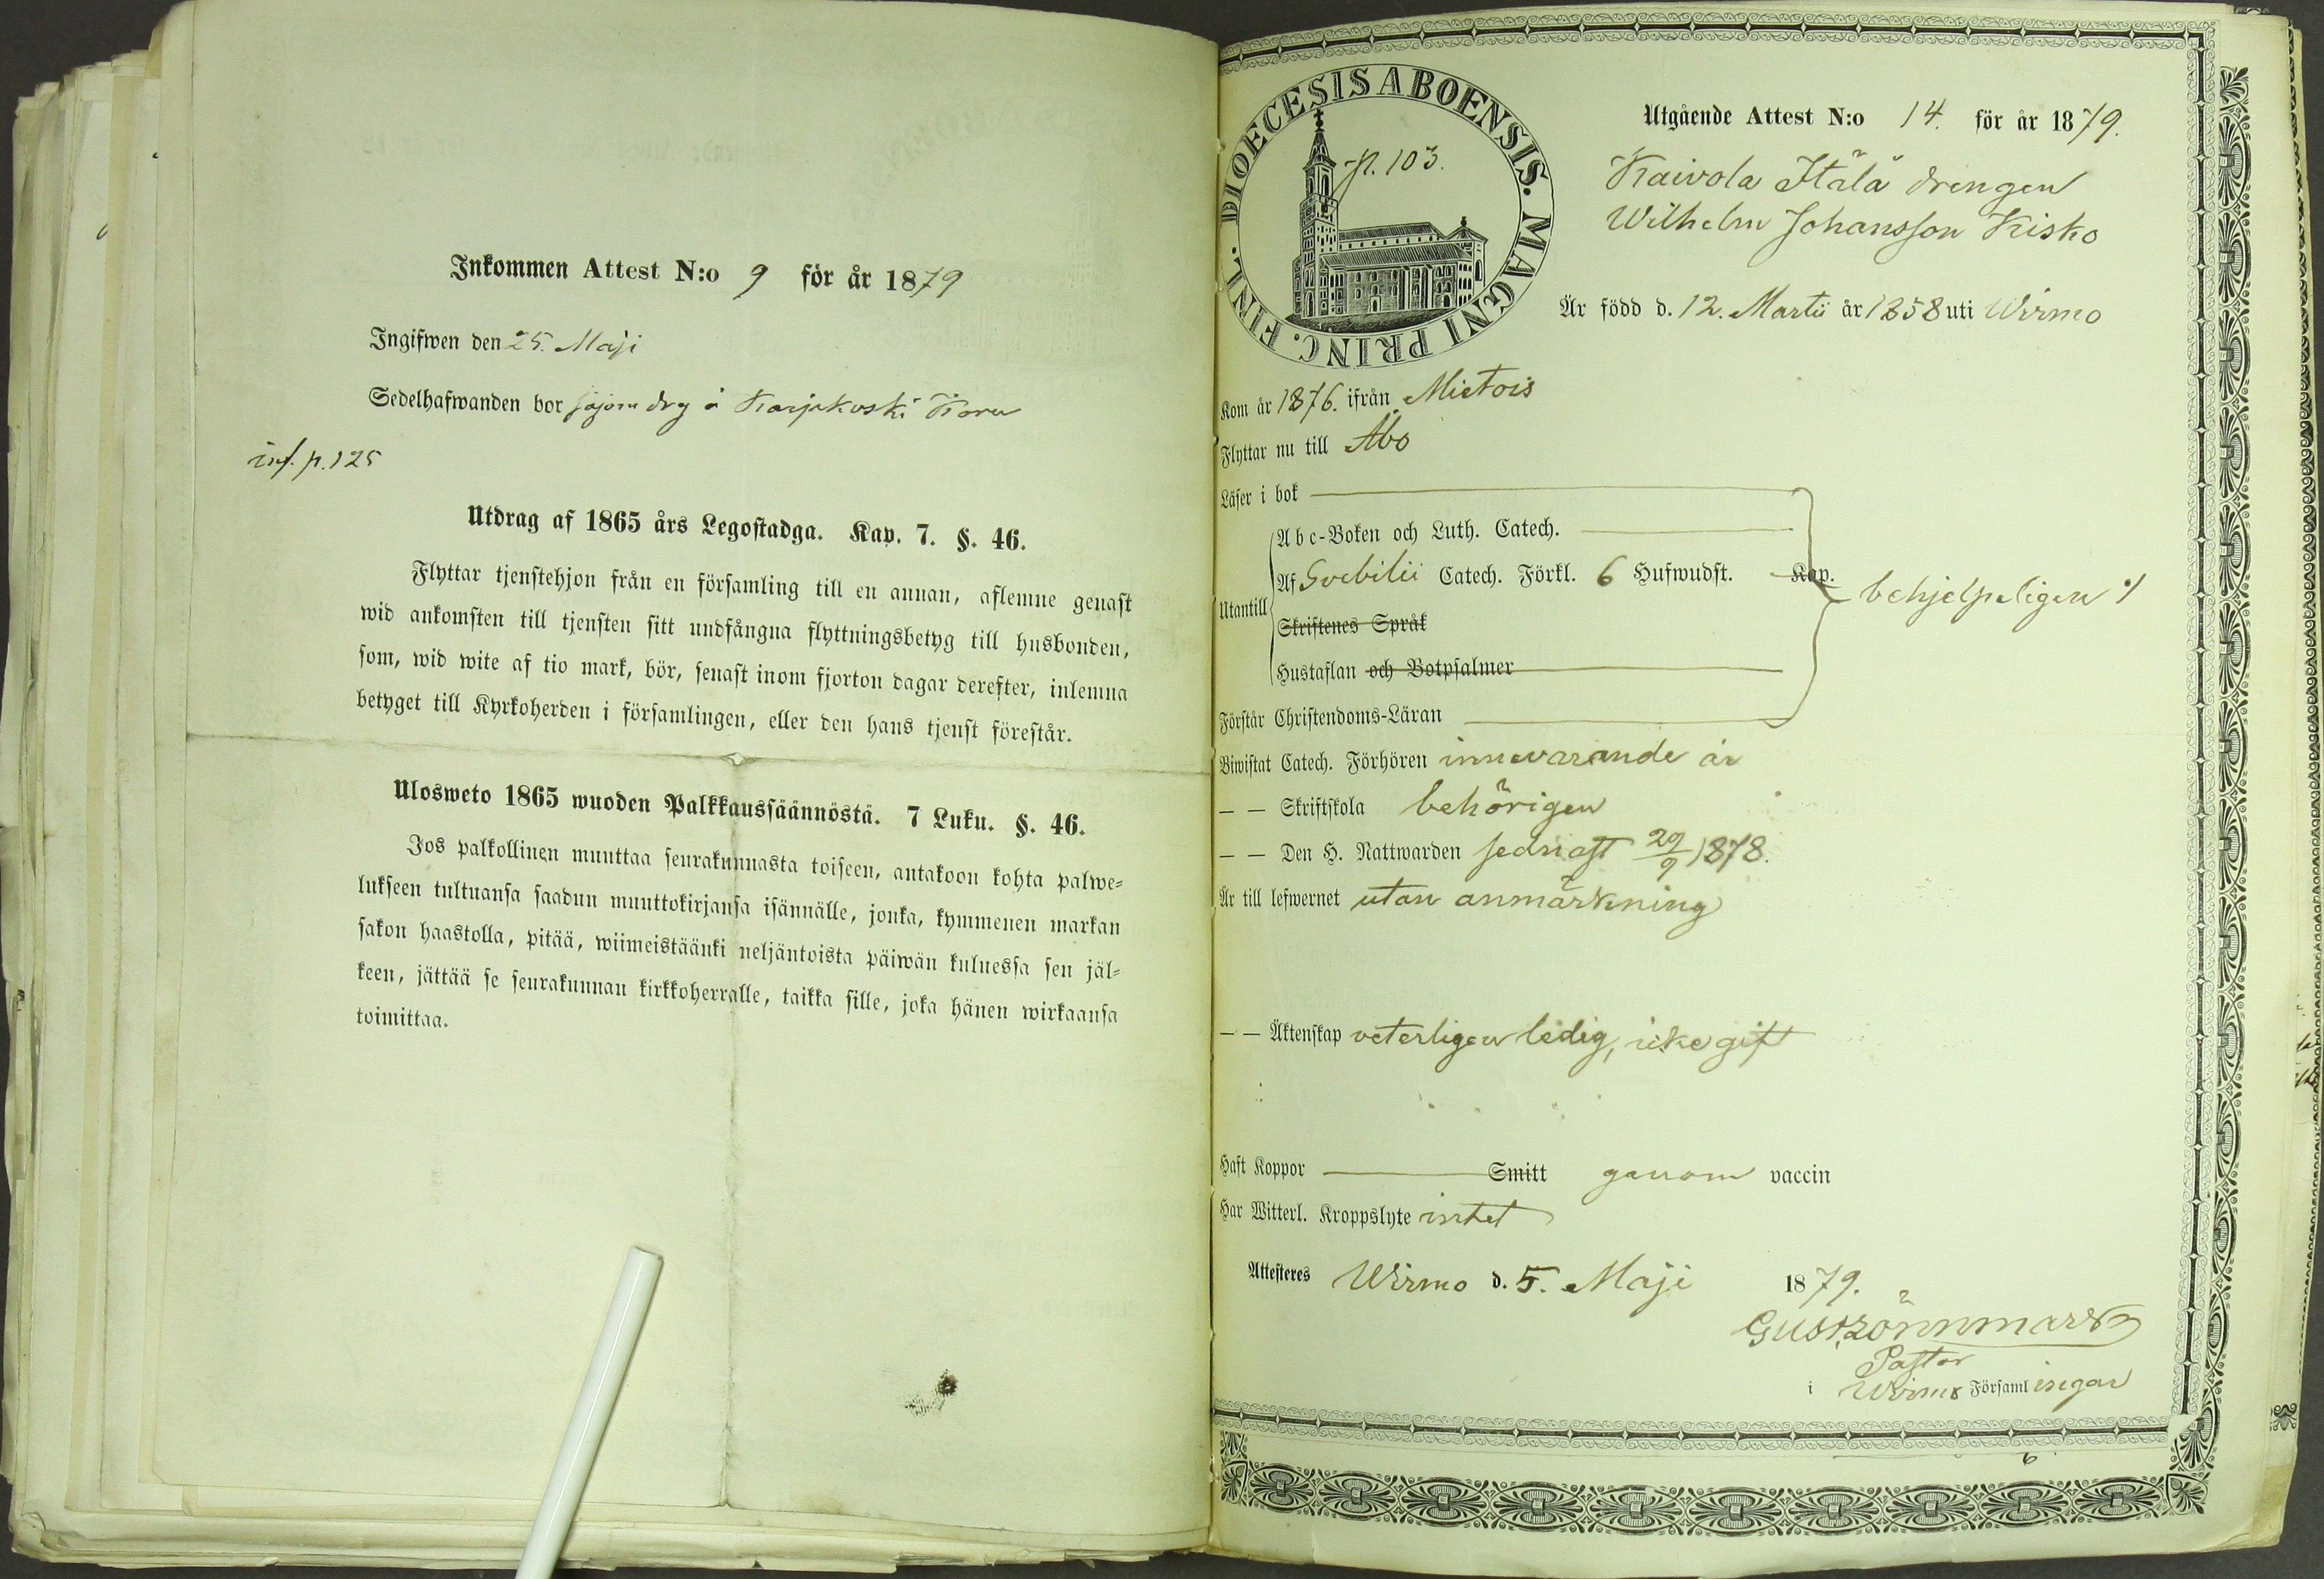 Inkommen Attest N:o 9 för år 1879
Ingifwen den 25. Maji
Sedelhafwanden bor såsom drg å Karjakoski
inf. p. 125
Utdrag af 1865 års Legostadga. Kap. 7. §. 46.
Flyttar tjenstehjon från en församling till en annan, aflemne genast
wid ankomsten till tjensten sitt undfångna flyttningsbetyg till husbonden,
som, wid wite af tio mark, bör, senast inom fjorton dagar derefter, inlemna
betyget till Kyrkoherden i församlingen, eller den hans tjenst förestår.
Ulosweto 1865 wuoden Palkkaussäännöstä. 7 Luku. §. 46.
Jos palkollinen muuttaa seurakunnasta toiseen, antakoon kohta palwe-
lukseen tultuansa saadun muuttokirjansa isännälle, jonka, kymmenen markan
sakon haastolla, pitää, wiimeistäänki neljäntoista päiwän kuluessa sen jäl-
keen, jättää se seurakunnan kirkkoherralle, taikka sille, joka hänen wirkaansa
toimittaa.
DIOECESIS ABOENSIS. MAGNI PRINC. FINL.
p. 103.
Utgående Attest N:o 14. för år 1879.
Kaivola Itälä drengen
Wilhelm Johansson Kisko
Är född d. 12. Martii år 1858 uti Wirmo
Kom år 1876. ifrån Mietois
Flyttar nu till Åbo
Läser i bok
Abc-Boken och Luth. Catech.
Utantill Af Svebilii Catech. Förkl. 6 Hufwudst. Kap. behjelpeligen
Skriftenes Språk
Hustaflan och Botpsalmer
Förstår Christendoms-Läran
Biwistat Catech. Förhören innevarande år
— — Skriftskola behörigen
— — Den H. Nattwarden sednast 29/9 1878.
Är till lefwernet utan anmärkning
— — Äktenskap veterligen ledig, icke gift
Haft Koppor Smitt genom vaccin
Har Witterl. Kroppslyte intet
Attesteres Wirmo d. 5. Maji 1879.
Gust. Lönnmark
Pastor
i Wirmo Församlingar